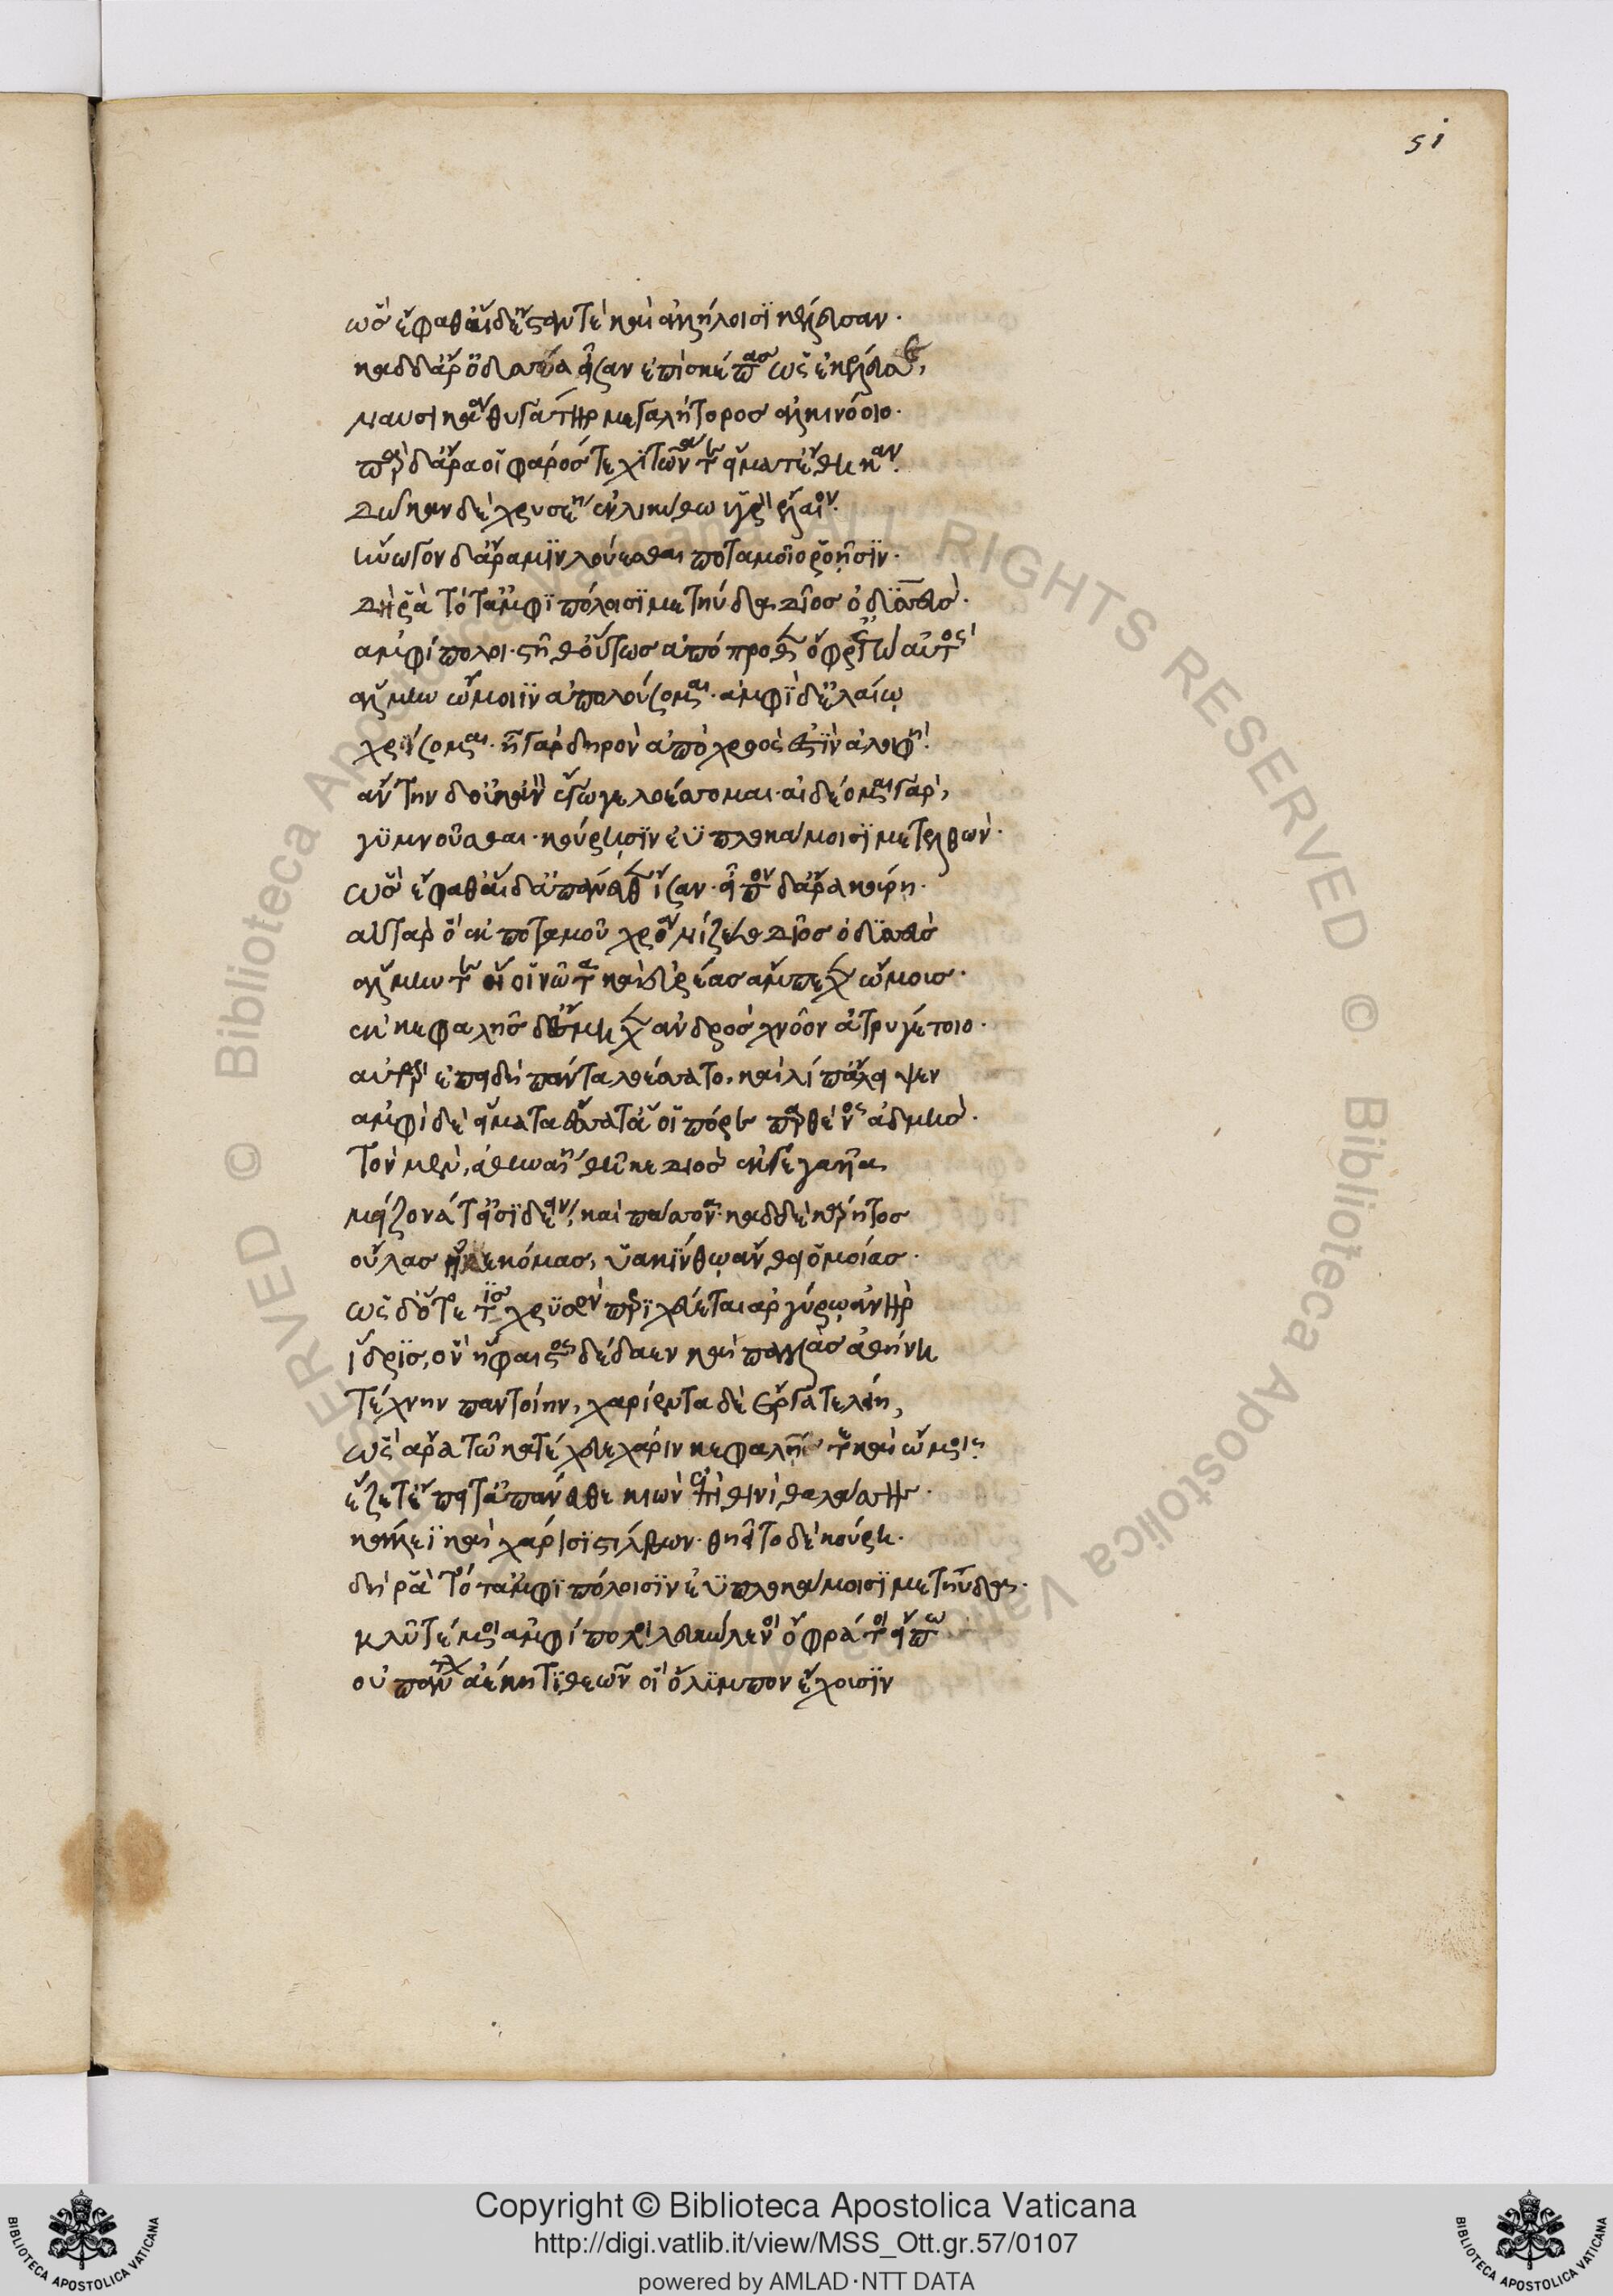 51
ὣς ἔφαθ' αἱ δ' ἔσταν τε καὶ ἀλλήλοισι κέλευσαν.
καδδ' ἄρ' ὀδυσσέα εἷσαν ἐπὶ σκέπας ὡς ἐκέλευσε,
ναυσικάα θυγάτηρ μεγαλήτορος ἀλκινόοιο.
παρ δ' ἄρα οἱ φᾶρός τε χιτῶνά τε εἵματ' ἔθηκαν.
δῶκαν δὲ χρυσέη ἐν ληκύθω ὑγρὸν ἔλαιον.
ἤνωγον δ' ἄρα μιν λούεσθαι ποταμοῖο ῥοῇσιν.
δή ῥα τότ' ἀμφιπόλοισι μετηύδα δῖος ὀδυσσεύς.
ἀμφίπολοι. στῆθ' οὕτως ἀπόπροθεν ὄφρ' ἐγὼ αὐτὸς
ἅλμην ὤμοιιν ἀπολούσομαι. ἀμφὶ δ' ἐλαίῳ
χρίσομαι. ἦ γὰρ δηρὸν ἀπὸ χροός ἐστιν ἀλοιφή.
ἄντην δ' οὐκ ἂν ἔγωγε λοέσσομαι. αἰδέομαι γὰρ,
γυμνοῦσθαι. κούρῃσιν ἐϋπλοκάμοισι μετελθών.
ὣς ἔφαθ' αἱ δ' ἀπάνευθεν ἴσαν. εἶπον δ' ἄρα κούρη.
αὐτὰρ ὃ ἐκ ποταμοῦ χρόα νίζετο δῖος ὀδυσσεὺς
ἅλμην ἥ οἱ νῶτα καὶ εὐρέας ἄμπεχεν ὤμους.
ἐκ κεφαλῆς δ' ἔσμηχεν ἁλὸς χνόον ἀτρυγέτοιο.
αὐτὰρ ἐπειδὴ πάντα λοέσσατο, καὶ λίπ' ἄλειψεν
ἀμφὶ δὲ εἵματα ἕσσατο ἅ οἱ πόρε παρθένος ἀδμής.
τὸν μὲν, ἀθηναίη θῆκε διὸς ἐκγεγαυῖα
μείζονά τ' εἰσιδέειν, καὶ πάσσονα. καδδὲ κάρητος
οὔλας ἧκε κόμας, ὑακινθίνῳ ἄνθει ὁμοίας.
ὡς δ' ὅτε τις χρυσὸν περιχεύεται ἀργύρῳ ἀνὴρ
ἴδρις, ὃν ἥφαιστος δέδαεν καὶ παλλὰς ἀθήνη
τέχνην παντοίην, χαρίεντα δὲ ἔργα τελείη,
ὣς ἄρα τῷ κατέχευε χάριν κεφαλῇ τε καὶ ὤμοις.
ἕζετ' ἔπειτ' ἀπάνευθε κιὼν ἐπὶ θινὶ θαλάσσης.
κάλλεϊ καὶ χάρισι στίλβων. θηεῖτο δὲ κούρη.
δή ῥα τότ' ἀμφιπόλοισιν ἐϋπλοκάμοισι μετηύδα.
κλῦτέ μοι ἀμφίπολοι λευκώλενοι ὄφρά τοι εἴπω
οὐ πάντων ἀέκητι θεῶν οἳ ὄλυμπον ἔχουσιν
Copyright © Biblioteca Apostolica Vaticana
http://digi.vatlib.it/view/MSS_Ott.gr.57/0107
powered by AMLAD·NTT DATA